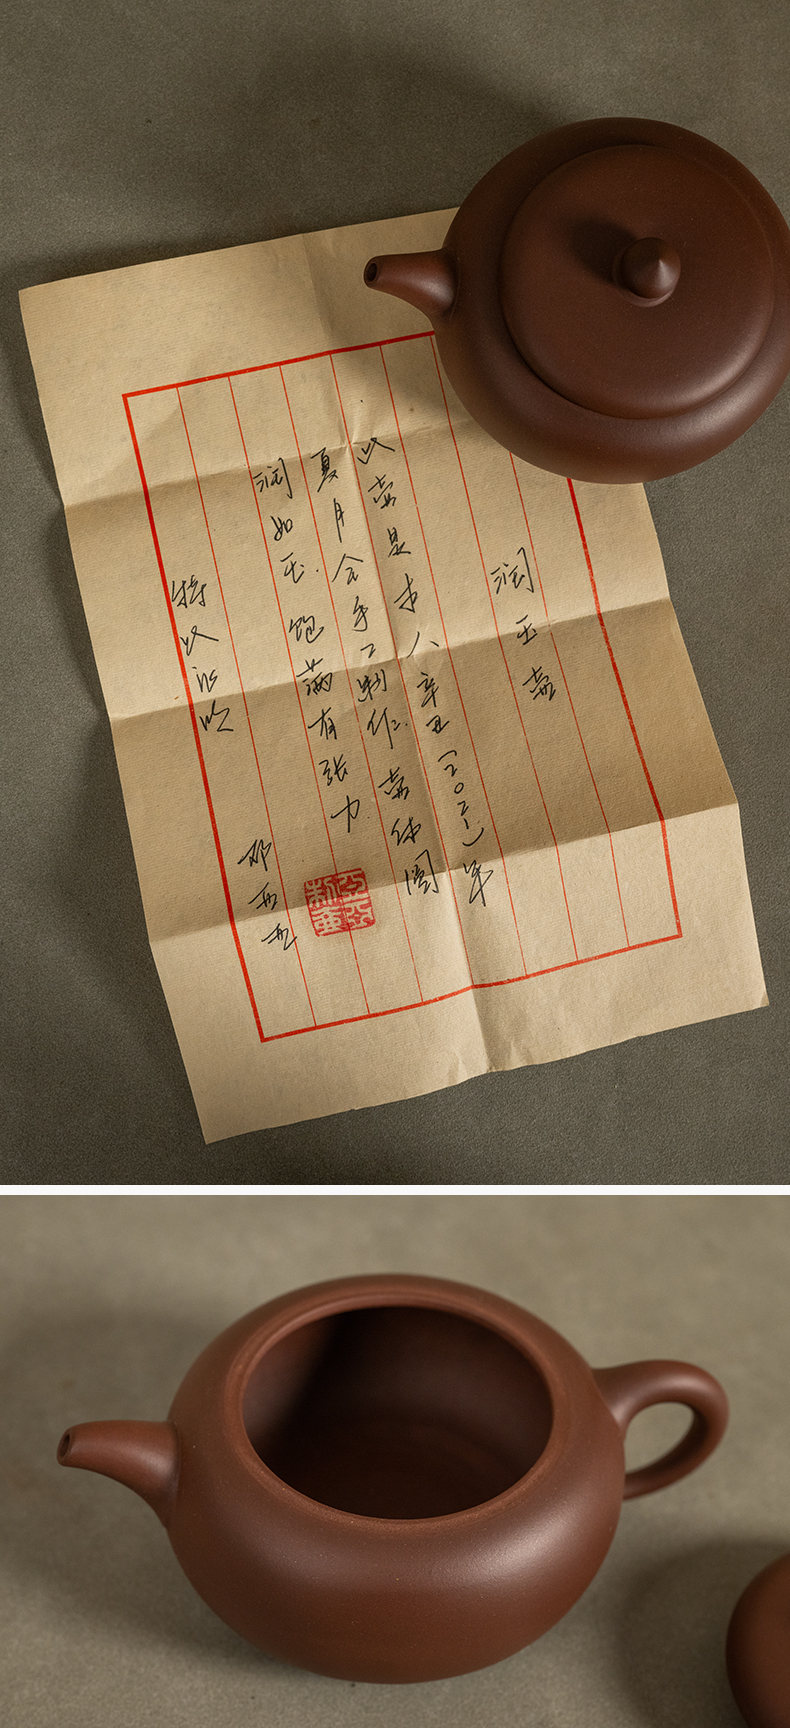 润玉壶
此壶是本人辛丑(2021)年
夏月全手工制作.壶体圆
润如玉.饱满有张力.
特此说明
邓亚亚